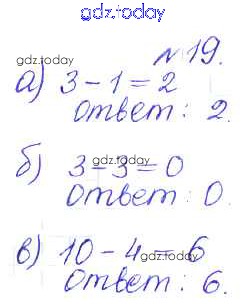 gdz.today
№19.
gdz.today
а) 3-1=2
Ответ: 2.
gdz.today
б) 3-3=0
Ответ: 0.
gdz.today
в) 10-4=6
Ответ: 6.